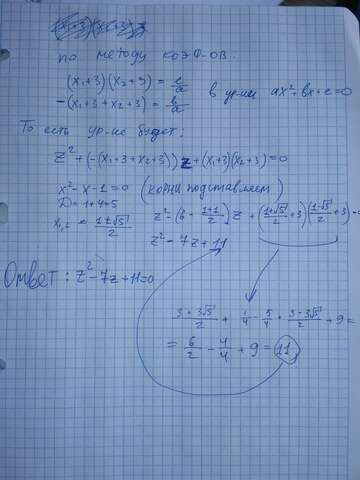 по методу коэф-ов.
(x₁+3)(x₂+3) = c/a
-(x₁+3+x₂+3) = b/a
в ур-ии ax²+bx+c=0
То есть ур-ие будет:
z²+(-(x₁+3+x₂+3))z+(x₁+3)(x₂+3)=0
x²-x-1=0 (корни подставляем)
D=1+4=5
x₁,₂ = (1±√5)/2
z²-(6+(1+1)/2)z+((1+√5)/2+3)((1-√5)/2+3)=0
z²-7z+11
Ответ: z²-7z+11=0
(3+3√5)/2 + 1/4 - 5/4 + (3-3√5)/2 + 9 =
= 6/2 - 4/4 + 9 = 11